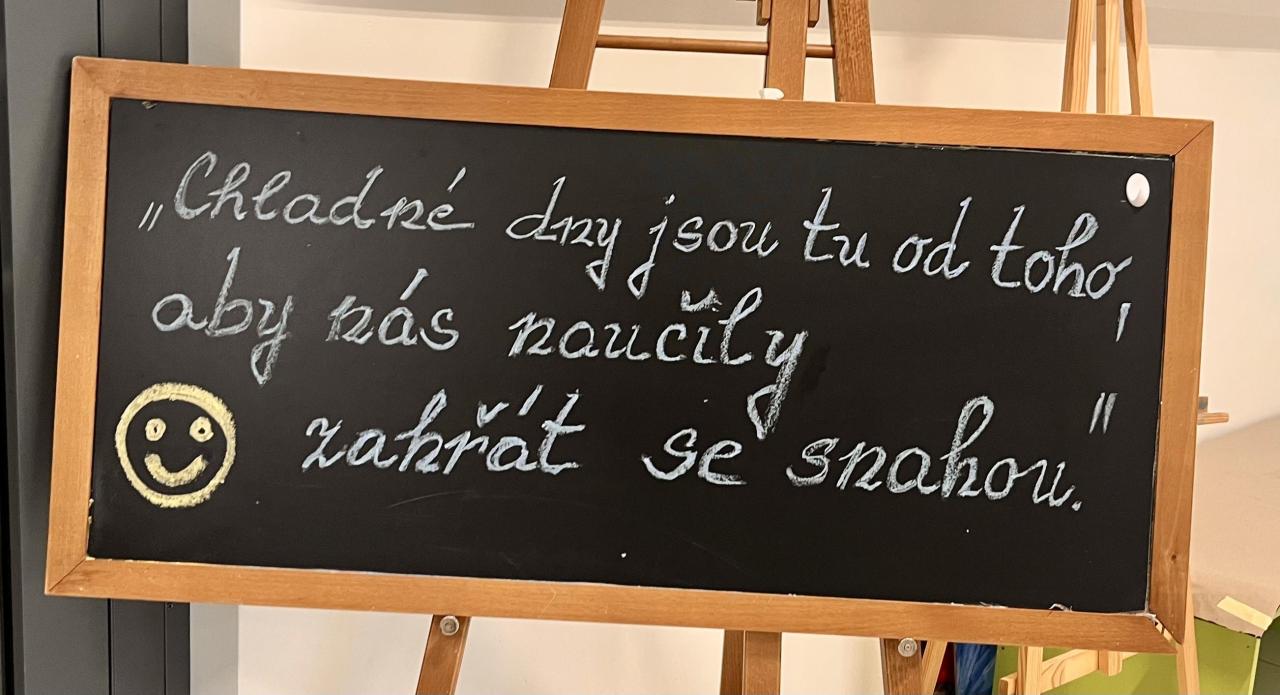 „Chladné dny jsou tu od toho,
aby nás naučily
zahřát se snahou."